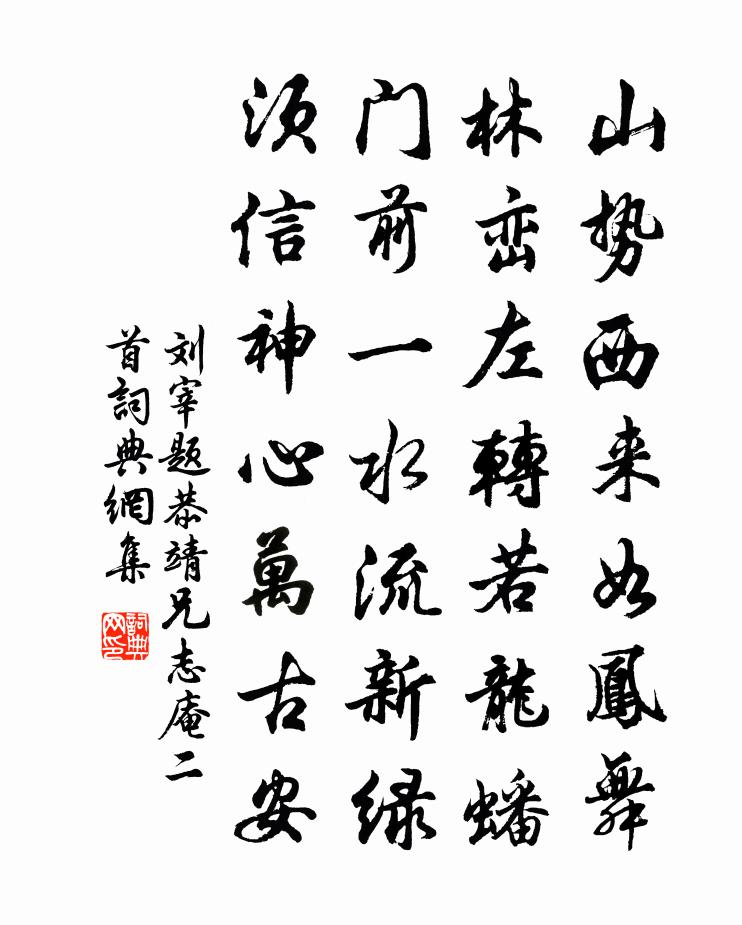 山势西来如鳳舞
林峦左轉若龍蟠
门前一水流新绿
须信神心萬古安
刘宰题恭靖兄志庵二
首詞典網集
詞典网印